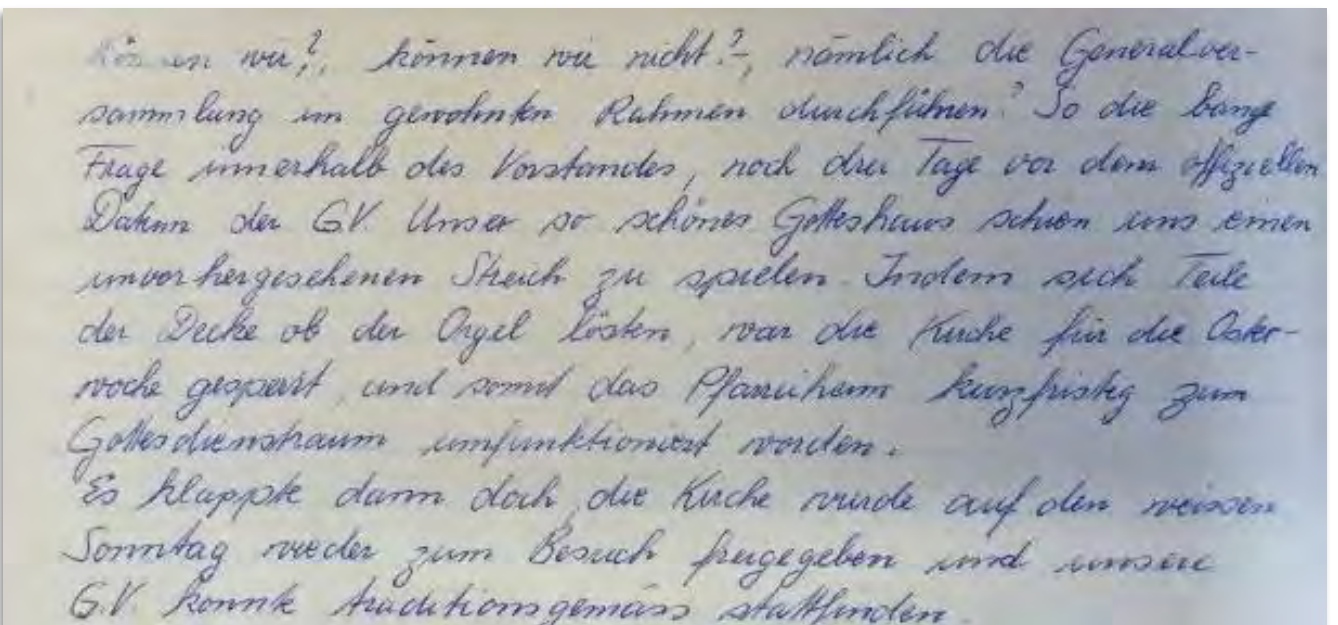 Können wir?, können wir nicht?, nämlich die Generalver-
sammlung im gewohnten Rahmen durchführen? So die bange
Frage innerhalb des Vorstandes, noch drei Tage vor dem offiziellen
Datum der G.V. Unser so schönes Gotteshaus schien uns einen
unvorhergesehenen Streich zu spielen. Indem sich Teile
der Decke ob der Orgel lösten, war die Kirche für die Oster-
woche gesperrt, und somit das Pfarreiheim kurzfristig zum
Gottesdienstraum umfunktioniert worden.
Es klappte dann doch, die Kirche wurde auf den weissen
Sonntag wieder zum Besuch freigegeben und unsere
G.V. konnte traditionsgemäss stattfinden.